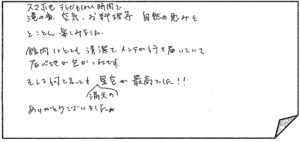 スマホもテレビもない時間で
滝の音、空気、お料理等 自然の恵みを
とことん 楽しみました。
館内はとても清潔でメンテが行き届いていて
居心地が良かったです。
そして何と言っても 満天の星空が最高でした!!
ありがとうございました